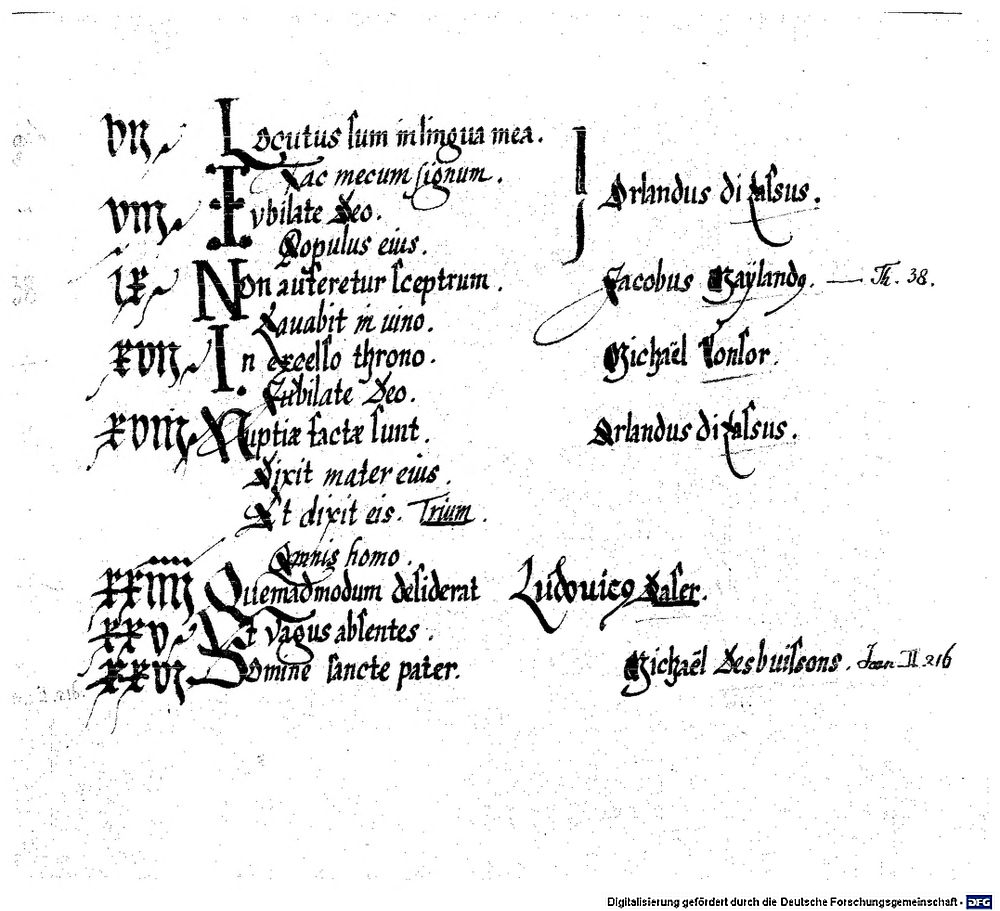 VII Locutus sum in lingua mea.
Fac mecum signum.
VIII Iubilate Deo. Orlandus di Lassus.
Populus eius.
IX Non auferetur sceptrum. Jacobus Maÿland9. — Th. 38.
Lavabit in uino.
XVII In excelso throno. Michaël Tonsor.
Jubilate Deo.
XVIII Nuptiæ factæ sunt. Orlandus di Lassus.
Dixit mater eius.
Et dixit eis. Trium.
Omnis homo.
XXIIII Quemadmodum desiderat Ludouic9 Daser.
XXV Et vagus absentes.
XXVI Domine sancte pater. Michaël Desbuissons. Joan II 216
Digitalisierung gefördert durch die Deutsche Forschungsgemeinschaft - DFG